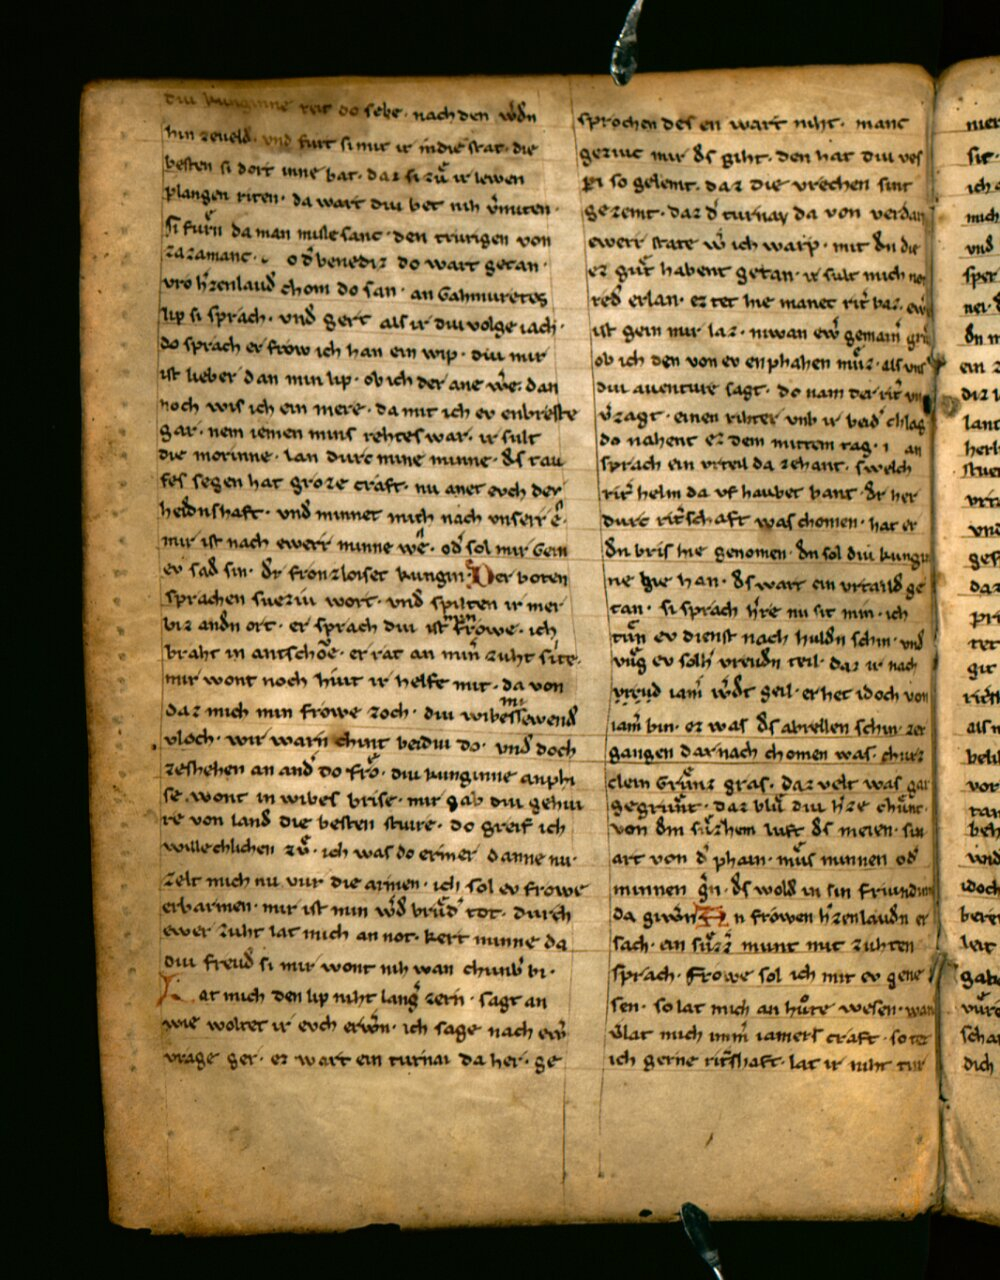 diu kunginne reit do selbe · nach den w̾dn
hin zeueld · vnd furt si mit ir indie stat · die
besten si dort inne bat · daz si zů ir lewen
planzen riten · da wart diu bet nih v̾miten ·
Si fůrn da man messe sanc · den trurigen von
zazamanc · o d̾ benediz do wart getan ·
vro h̾zenlaud̾ chom do san · an Gahmuretes
lip si sprach · vnd gert als ir diu volge iach ·
do sprach er frow ich han ein wip · diu mir
ist lieber dan min lip · ob ich der ane w̾e · dan
noch wis ich ein mere · da mit ich ev enbreste
gar · nem iemen mins rehtes war · ir sult
die morinne · lan durc mine minne · ds tau
fes segen hat groze craft · nu anet evch der
heidnshaft · vnd minnet mich nach vnserr e ·
mir ist nach ewerr minne we · od̾ sol mir Gein
ev sad̾ sin · dr franzloiser kungin · Der boten
sprachen sueziu wort · vnd spilten ir mer
biz andn ort · er sprach diu ist min frowe · ich
braht in antschoe · er rat an min zuht site ·
mir wont noch hiut ir helfe mit · da von
daz mich min frowe zoch · diu wibes missewend̾
vloch · wir warn chint beidiu do · vnd̾ doch
zesehen an and̾ do fro · diu kunginne anphi
se · wont in wibes brise · mir gab diu gehiu
re von land̾ die besten stiure · do greif ich
willechlichen zů · ich was do ermer danne nu ·
zelt mich nu vur die armen · ich sol ev frowe
erbarmen · mir ist min w̾d̾ brůd̾ tot · durch
ewer zuht lat mich an not · kert minne da
diu freud̾ si mir wont nih wan chunb̾ bi ·
Lat mich den lip niht lang̾ zern · sagt an
wie woltet ir evch erw̾n · ich sage nach ew̾
vrage ger · ez wart ein turnai da her · ge
sprochen des en wart niht · manc
geziuc mir ds giht · den hat diu ves
pi so gelemt · daz die vrechen sint
gezemt · daz d̾ turnay da von verdarp
ewerr state w̾ ich warp · mit dn die
ez gůt habent getan · ir sult mich
red̾ erlan · ez tet hie manec rit̾ baz ·
ist gein mir laz · niwan ew̾ gemain
ob ich den von ev enphahen můz · als vns
diu auenture sagt · do nam der rit̾
v̾zagt · einen rihter vnb ir beid̾ chlag
do nahent ez dem mitten tag · an
sprach ein vrteil da zehant · swelch
rit̾ helm da vf haubet bant · dr her
durc rit̾schaft was chomen · hat er
dn bris hie genomen · dn sol diu kungin
ne hie han · ds wart ein vrtaild̾ ge
tan · si sprach h̾re nu sit min · ich
tůn ev dienst nach huldn schin · vnd
vůg ev solh vreudn teil · daz ir nach
vreud iam̾ w̾dt geil · er het idoch von
iam̾ bin · oz was ds abrellen schin · zer
gangen dar nach chomen was · churz
clein Grůnz gras · daz velt was gar
gegrůnt · daz blů diu h̾ze chůnt ·
von dm sůzhem luft ds meien · sin
art von d̾ phain · můs minnen od̾
minnen g̾n · ds wold̾ in sin friundin
da giw̾n An frowen h̾zenlaudn er
sach · ein sůzz̾ munt mit zuhten
sprach · frowe sol ich mit ev gene
sen · so lat mich an hůte wesen · wan
v̾lat mich imm̾ iamers craft · so tet
ich gerne rit̾shaft · lat ir niht tur